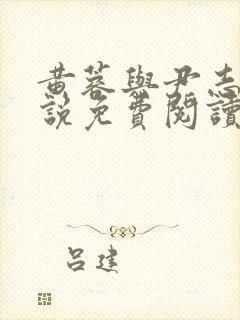 黄蓉與尹志
說免費閱讀
呂建